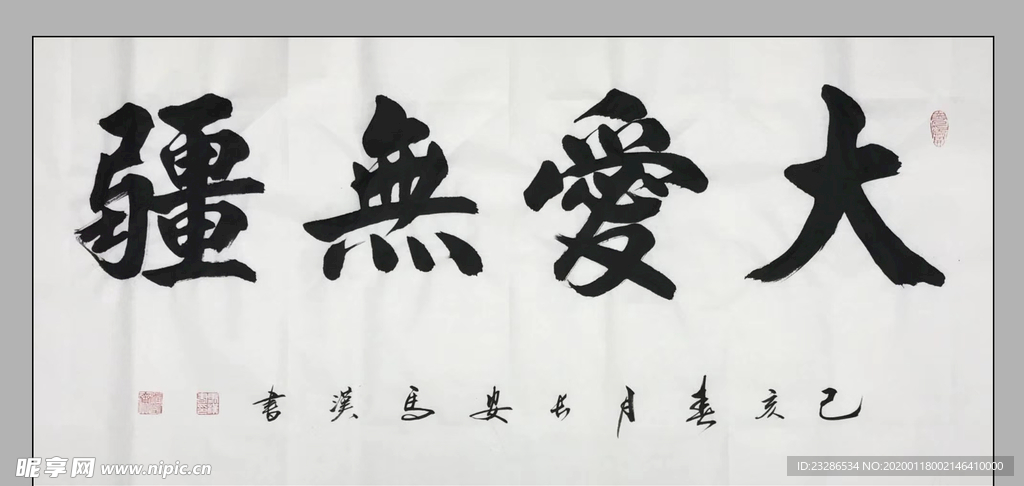 大愛無疆
己亥春月長安馬漢書
昵享网 www.nipic.cn
ID:23286534 NO:20200118002146410000